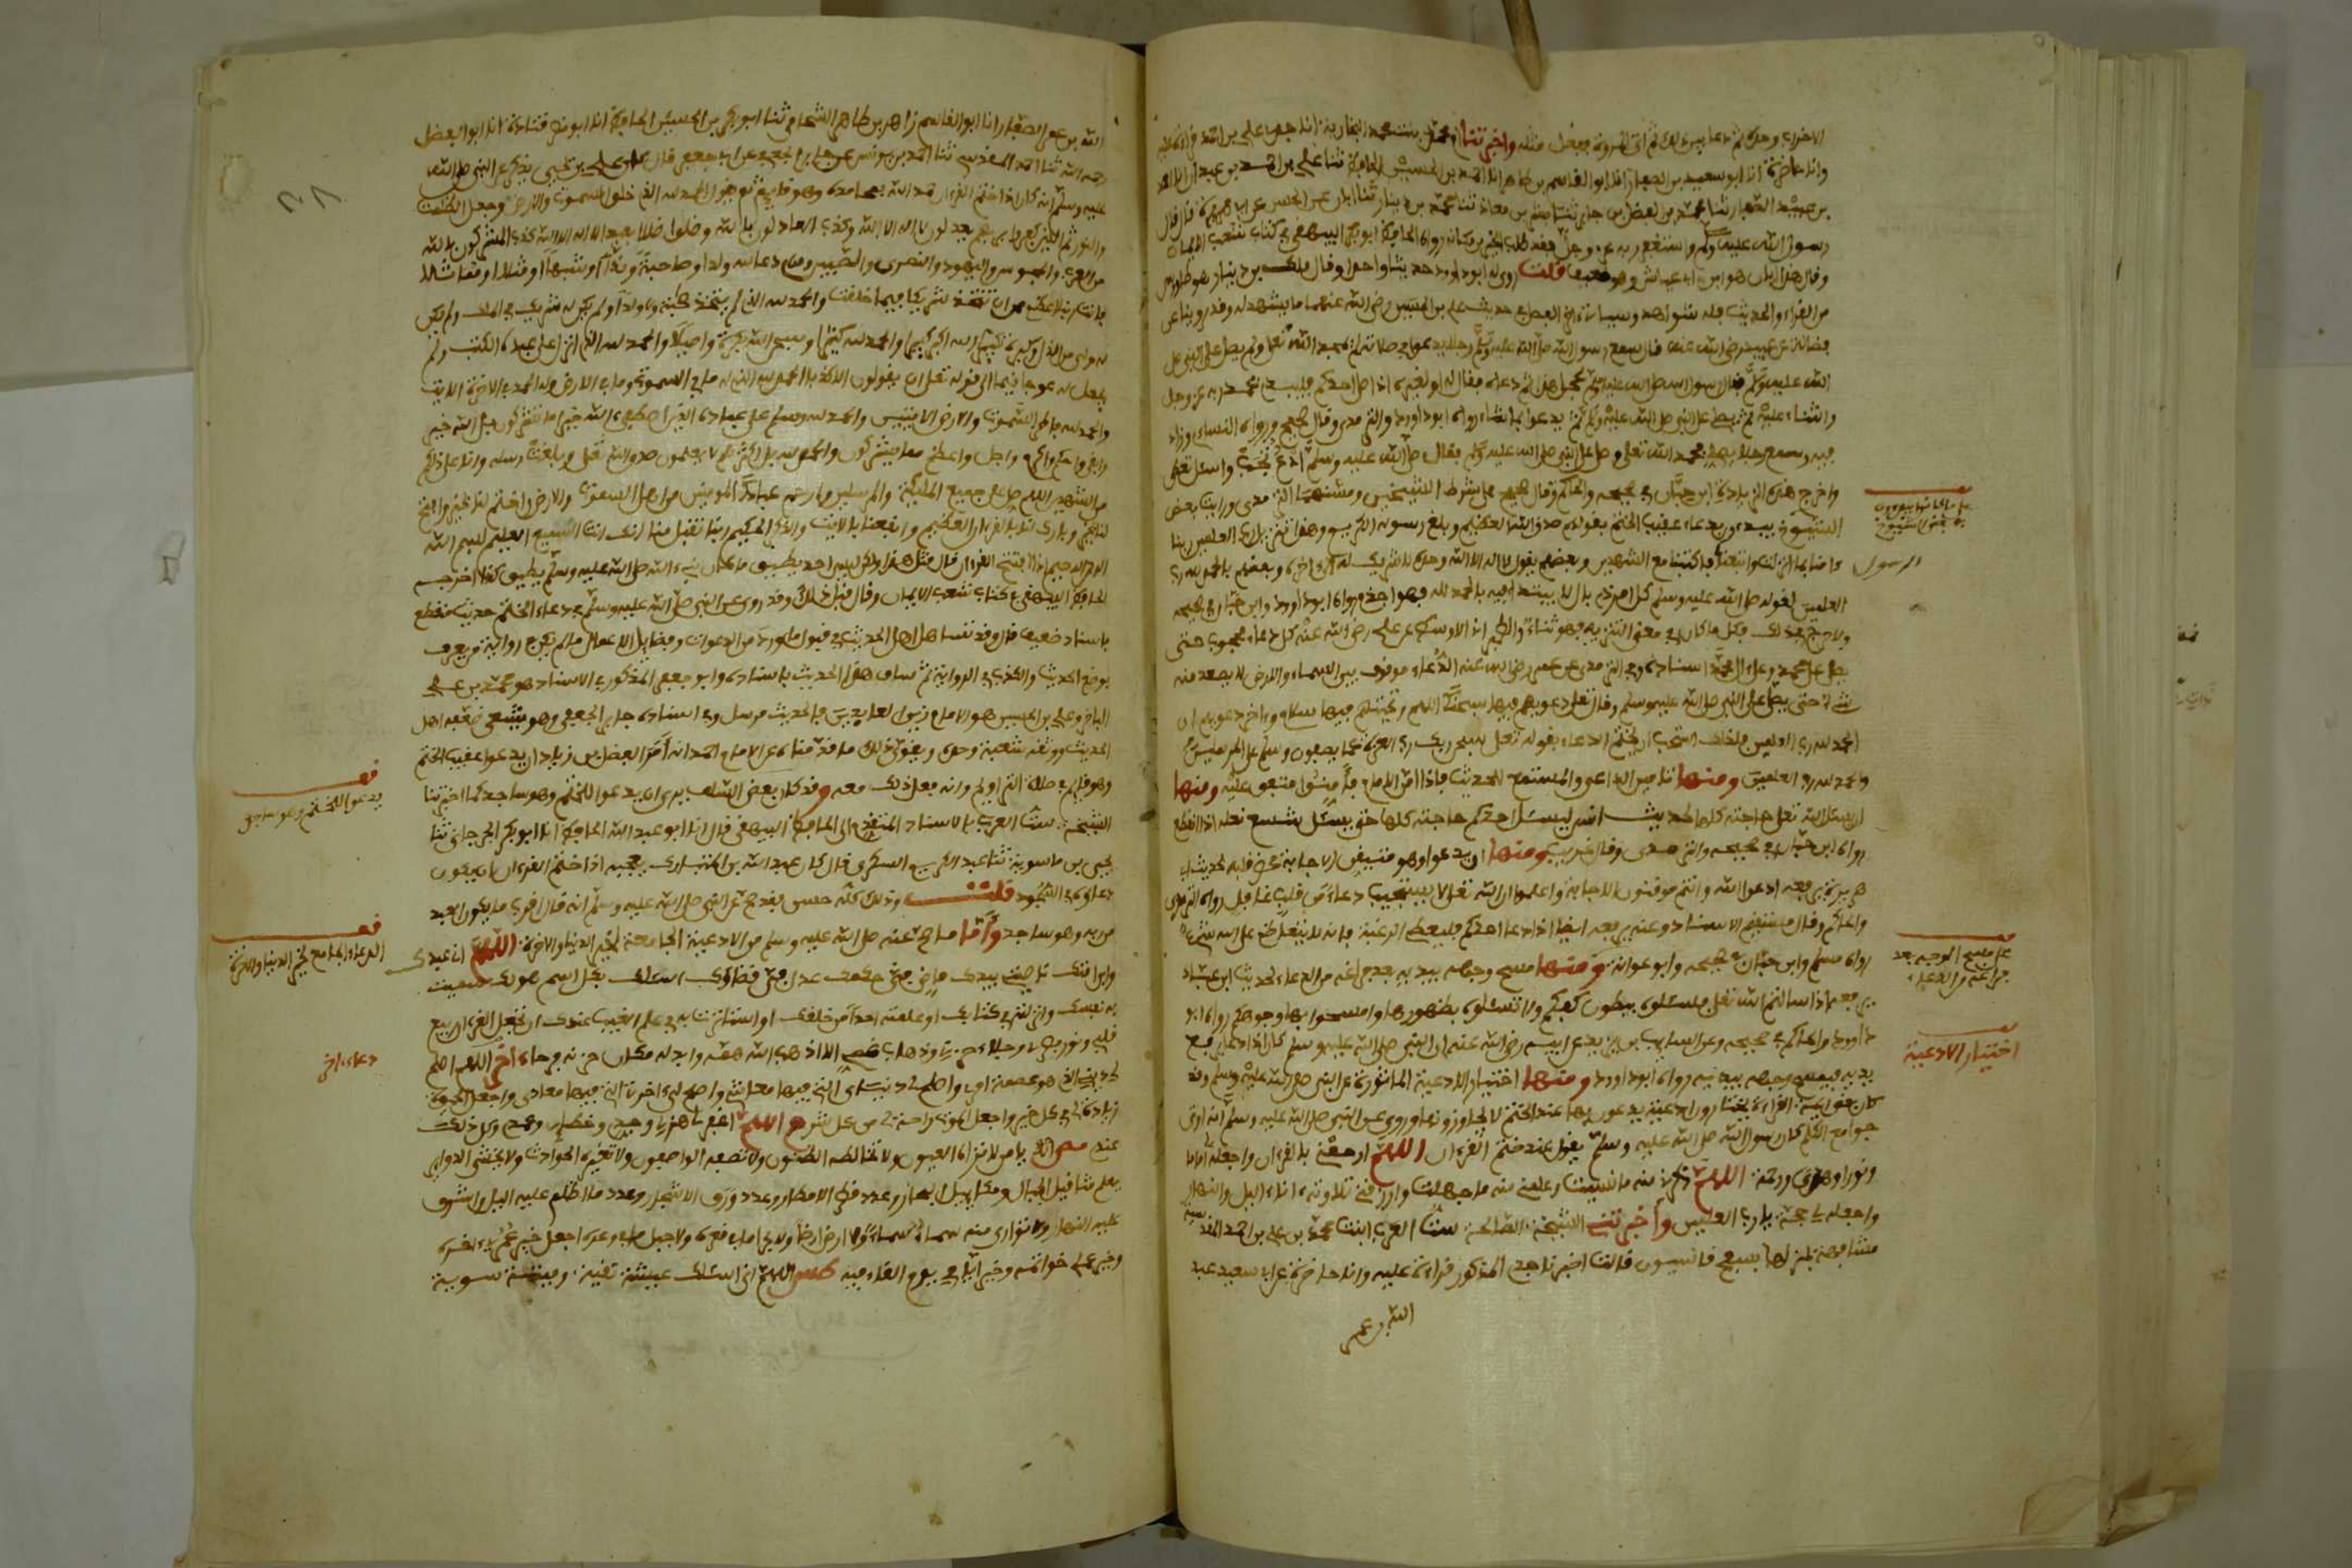 وانا حاضرة انا ابو سعيد بن الصفار انا ابو القاسم بن طاهر انا احمد بن الحسين الحافظ ثنا علي بن احمد بن عبدان انا احمد
بن عبيد الصفار ثنا محمد بن الفضل بن جابر ثنا بشر بن معاذ ثنا محمد بن دينار ثنا ابان عن الحسن عن ابي هريرة قال قال
رسول الله عليه وسلم واستغفر ربه عز وجل فقد طلب الخير مكانه رواه الحافظ ابو بكر البيهقي في كتاب شعب الايمان
وقال هذا ابان هو ابن ابي عياش وهو ضعيف قلت روى له ابو داود حديثا واحدا وقال ملك بن دينار هو طاووس
من القراء والحديث فله شواهد وسياتي اخر الفصل في حديث علي بن الحسين رضي الله عنهما ما يشهد له وقد روينا عن
فضالة بن عبيد رضي الله عنه قال سمع رسول الله صلى الله عليه وسلم رجلا يدعو في صلاته لم يحمد الله تعلى ولم يصل على النبي صلى
الله عليه وسلم فقال رسول الله صلى الله عليه وسلم عجل هذا ثم دعاه فقال له او لغيره اذا صلى احدكم فليبدا بتحميد ربه عز وجل
والثناء عليه ثم يصلي على النبي صلى الله عليه وسلم ثم يدعوا بما شاء رواه ابو داود والترمذي وقال صحيح ورواه النساءي وزاد
فيه وسمع رجلا يصلي فحمد الله تعلى وصلى على النبي صلى الله عليه وسلم فقال صلى الله عليه وسلم ادع تجب واسئل تعطى
واخرج هذه الزيادة ابن حبان في صحيحه والحاكم وقال صحيح على شرط الشيخين ومشهما الترمذي ورايت بعض
الشيوخ يبتدءون بدعاء عقيب الختم بقولهم صدق الله العظيم وبلغ رسوله الكريم وهذا تنزيل رب العلمين ربنا
ءامنا بما انزلت واتبعنا فاكتبنا مع الشهدين وبعضهم يقول لا اله الا الله وحده لا شريك له الى اخره وبعضهم بالحمد لله رب
العلمين لقوله صلى الله عليه وسلم كل امر ذي بال لا يبتدا فيه بالحمد لله فهو اجذم رواه ابو داود وابن حبان في صحيحه
ولا حرج في ذلك فكل ما كان في معنى التنزيه فهو ثناء وللطبراني في الاوسط عن علي رضي الله عنه كل دعاء محجوب حتى
يصلى على محمد وعلى ال محمد اسناده وفي الترمذي عن عمر رضي الله عنه الدعاء موقوف بين السماء والارض لا يصعد منه
شيء حتى يصلى على النبي صلى الله عليه وسلم وقال تعلى دعويهم فيها سبحنك اللهم وتحيتهم فيها سلام وءاخر دعويهم ان
الحمد لله رب العلمين فلذلك استحب ان يختم الدعاء بقوله تعلى سبحن ربك رب العزة عما يصفون وسلم على المرسلين
والحمد لله رب العلمين ومنها تامين الداعي والمستمع لحديث فاذا امن الامام فامنوا متفق عليه ومنها
ان يسئل الله تعلى حاجته كلها لحديث انس ليسئل احدكم حاجته كلها حتى يسئل شسع نعله اذا انقطع
رواه ابن حبان في صحيحه والترمذي وقال غريب ومنها ان يدعوا وهو متيقن الاجابة يحضر قلبه لحديث ابي
هريرة يرفعه ادعوا الله وانتم موقنون بالاجابة واعلموا ان الله تعلى لا يستجيب دعاء من قلب غافل رواه الترمذي
والحاكم وقال مستقيم الاسناد وعنه يرفعه ايضا اذا دعا احدكم فليعظم الرغبة فانه لا يتعاظم على الله شيء
رواه مسلم وابن حبان في صحيحه وابو عوانة ومنها مسح وجهه بيديه بعد فراغه من الدعاء لحديث ابن عباس
يرفعه اذا سالتم الله تعلى فسئلوه ببطون اكفكم ولا تسئلوه بظهورها وامسحوا بها وجوهكم رواه ابو
داوود والحاكم في صحيحه وعن السائب بن يزيد عن ابيه رضي الله عنه ان النبي صلى الله عليه وسلم كان اذا دعا يرفع
يديه فيمسح وجهه بيديه رواه ابو داود ومنها اختيار الادعية الماثورة عن النبي صلى الله عليه وسلم وقد
كان بعض ايمة القراءة يختارون ادعية يدعون بها عند الختم لا يجاوزونها وروي عن النبي صلى الله عليه وسلم انه اوتي
جوامع الكلم كان رسول الله صلى الله عليه وسلم يقول عند ختم القرءان اللهم ارحمني بالقرءان واجعله لي اماما
ونورا وهدى ورحمة اللهم ذكرني منه ما نسيت وعلمني منه ما جهلت وارزقني تلاوته ءاناء اليل والنهار
واجعله لي حجة يا رب العلمين وأخبرتني الشيخة الصالحة ست العرب ابنت محمد بن علي بن احمد المقدسية
مشافهة بمنزلها بسفح قاسيون قالت اخبرنا جدي المذكور قراءة عليه وانا حاضرة عن ابي سعيد عبد
الله بن عمر
الرسول
على مسح الوجه بعد
فراغه من الدعاء
اختيار الادعية
الله بن عمر الصفار انا ابو القاسم زاهر بن طاهر الشحامي ثنا ابو بكر بن الحسين الحافظ انا ابو نصر قتادة انا ابو الفضل
عليه وسلم انه كان اذا ختم القرءان حمد الله بمحامده وهو قايم ثم يقول الحمد لله الذي خلق السموت والارض وجعل الظلمت
والنور ثم الذين كفروا بربهم يعدلون لا اله الا الله وكذب العادلون بالله وضلوا ضلالا بعيدا لا اله الا الله كذب المشركون بالله
من العرب والمجوس واليهود والنصرى والصبين ومن دعا لله ولدا او صاحبة او ندا او شبها او مثلا
فانت ربنا اعظم من ان تتخذ شريكا فيما خلقت والحمد لله الذي لم يتخذ صحبة ولا ولدا ولم يكن له شريك في الملك ولم يكن
له ولي من الذل وكبره تكبيرا الله اكبر كبيرا والحمد لله كثيرا وسبحن الله بكرة واصيلا والحمد لله الذي انزل على عبده الكتب ولم
يجعل له عوجا قيما الى قوله تعلى ان يقولون الا كذبا الحمد لله الذي له ما في السموت وما في الارض وله الحمد في الاخرة الايت
والحمد لله فاطر السموت والارض الايتين والحمد لله وسلم على عباده الذين اصطفى ءالله خير اما تشركون بل الله خير
وابقى واحكم واكرم واجل واعظم مما يشركون والحمد لله بل اكثرهم لا يعلمون صدق الله تعلى وبلغت رسله وانا على ذلكم
من الشهدين اللهم صل على جميع الملئكة والمرسلين وارحم عبادك المومنين من اهل السموت والارض واختم لنا بخير وافتح
لنا بخير وبارك لنا في القرءان العظيم وانفعنا بالايت والذكر الحكيم ربنا تقبل منا انك انت السميع العليم بسم الله
الرحمن الرحيم ثم اذا افتتح القرءان قال مثل هذا ولكن ليس احد يطيق ما كان نبيء الله صلى الله عليه وسلم يطيق كذا اخرجه
الحافظ البيهقي في كتاب شعب الايمان وقال قبل ذلك وقد روي عن النبي صلى الله عليه وسلم في دعاء الختم حديث منقطع
باسناد ضعيف قال وقد تساهل اهل الحديث في قبول ما ورد من الدعوات وفضايل الاعمال ما لم يكن في رواية من يعرف
بوضع الحديث والكذب في الرواية ثم ساق هذا الحديث باسناده وابو جعفر المذكور في الاسناد هو محمد بن علي
الباقر وعلي بن الحسين هو الامام زين العابدين فالحديث مرسل وفي اسناده جابر الجعفي وهو شيعي ضعفه اهل
الحديث ووثقه شعبة وحده ويقوي ذلك ما قدمناه عن الامام احمد انه امر الفضل بن زياد ان يدعوا عقيب الختم
وهو قايم في صلاة التراويح وانه فعل ذلك معه وقد كان بعض السلف يرى ان يدعوا للختم وهو ساجد كما اخبرتنا
الشيخة ست العرب بالاسناد المتقدم الى الحافظ البيهقي قال انا ابو عبد الله الحافظ انا ابو بكر الجرجاني ثنا
يحيى بن ماسويه ثنا عبد الكريم السكري قال كان عبد الله بن المبارك يعجبه اذا ختم القرءان ان يكون
دعاؤه في السجود قلت وذلك كله حسن فقد صح عن النبي صلى الله عليه وسلم انه قال اقرب ما يكون العبد
من ربه وهو ساجد وأما ما صح عنه صلى الله عليه وسلم من الادعية الجامعة لخير الدنيا والاخرة اللهم اني عبدك
وابن امتك ناصيتي بيدك ماض في حكمك عدل في قضاؤك اسئلك بكل اسم هو لك سميت
به نفسك وانزلته في كتابك او علمته احدا من خلقك او استاثرت به في علم الغيب عندك ان تجعل القرءان ربيع
قلبي ونور بصري وجلاء حزني وذهاب همي الا اذهب الله همه وابدله مكان حزنه فرحا ءاخر اللهم اصلح
لي ديني الذي هو عصمة امري واصلح لي دنياي التي فيها معاشي واصلح لي ءاخرتي التي فيها معادي واجعل الحيوة
زيادة لي في كل خير واجعل الموت راحة لي من كل شر م اللهم اغفر لي هزلي وجدي وخطئي وعمدي وكل ذلك
عندي يا من لا تراه العيون ولا تخالطه الظنون ولا تصفه الواصفون ولا تغيره الحوادث ولا يخشى الدواير
يعلم مثاقيل الجبال ومكاييل البحار وعدد قطر الامطار وعدد ورق الاشجار وعدد ما اظلم عليه اليل واشرق
عليه النهار ولا توارى منه سماء سماء ولا ارض ارضا ولا بحر ما في قعره ولا جبل ما في وعره اجعل خير عمري ءاخره
وخير عملي خواتمه وخير ايامي يوم القاك فيه اللهم اني اسئلك عيشة نقية وميتة سوية
يدعوا للختم وهو ساجد
الدعاء الجامع لخير الدنيا والاخرة
دعاء ءاخر